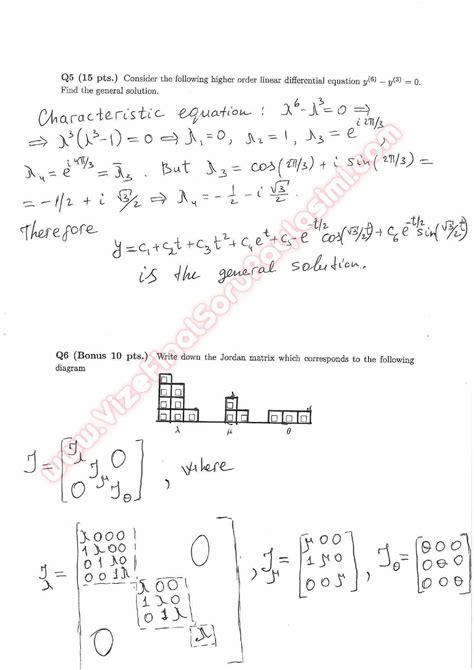 Q5 (15 pts.) Consider the following higher order linear differential equation y⁽⁶⁾ − y⁽³⁾ = 0.
Find the general solution.
Characteristic equation : λ⁶-λ³=0 ⇒
⇒ λ³(λ³-1) = 0 ⇒ λ₁=0, λ₂=1, λ₃ = e^{i2π/3},
λ₄=e^{i4π/3} = λ̄₃. But λ₃ = cos(2π/3) + i sin(2π/3) =
= -1/2 + i √3/2 ⇒ λ₄ = -1/2 - i √3/2.
Therefore
y=c₁+c₂t+c₃t²+c₄e^t+c₅e^{-t/2}cos(√3/2 t)+c₆e^{-t/2}sin(√3/2 t)
is the general solution.
www.VizeFinalSoruPaylasimi.com
Q6 (Bonus 10 pts.) Write down the Jordan matrix which corresponds to the following
diagram
λ μ θ
J = [J_λ 0
J_μ
0 J_θ] , where
J_λ = [λ 0 0 0
1 λ 0 0
0 1 λ 0
0 0 1 λ
0
λ 0 0
1 λ 0
0 1 λ
0 λ] , J_μ = [μ 0 0
1 μ 0
0 0 μ] , J_θ = [θ 0 0
0 θ 0
0 0 θ]